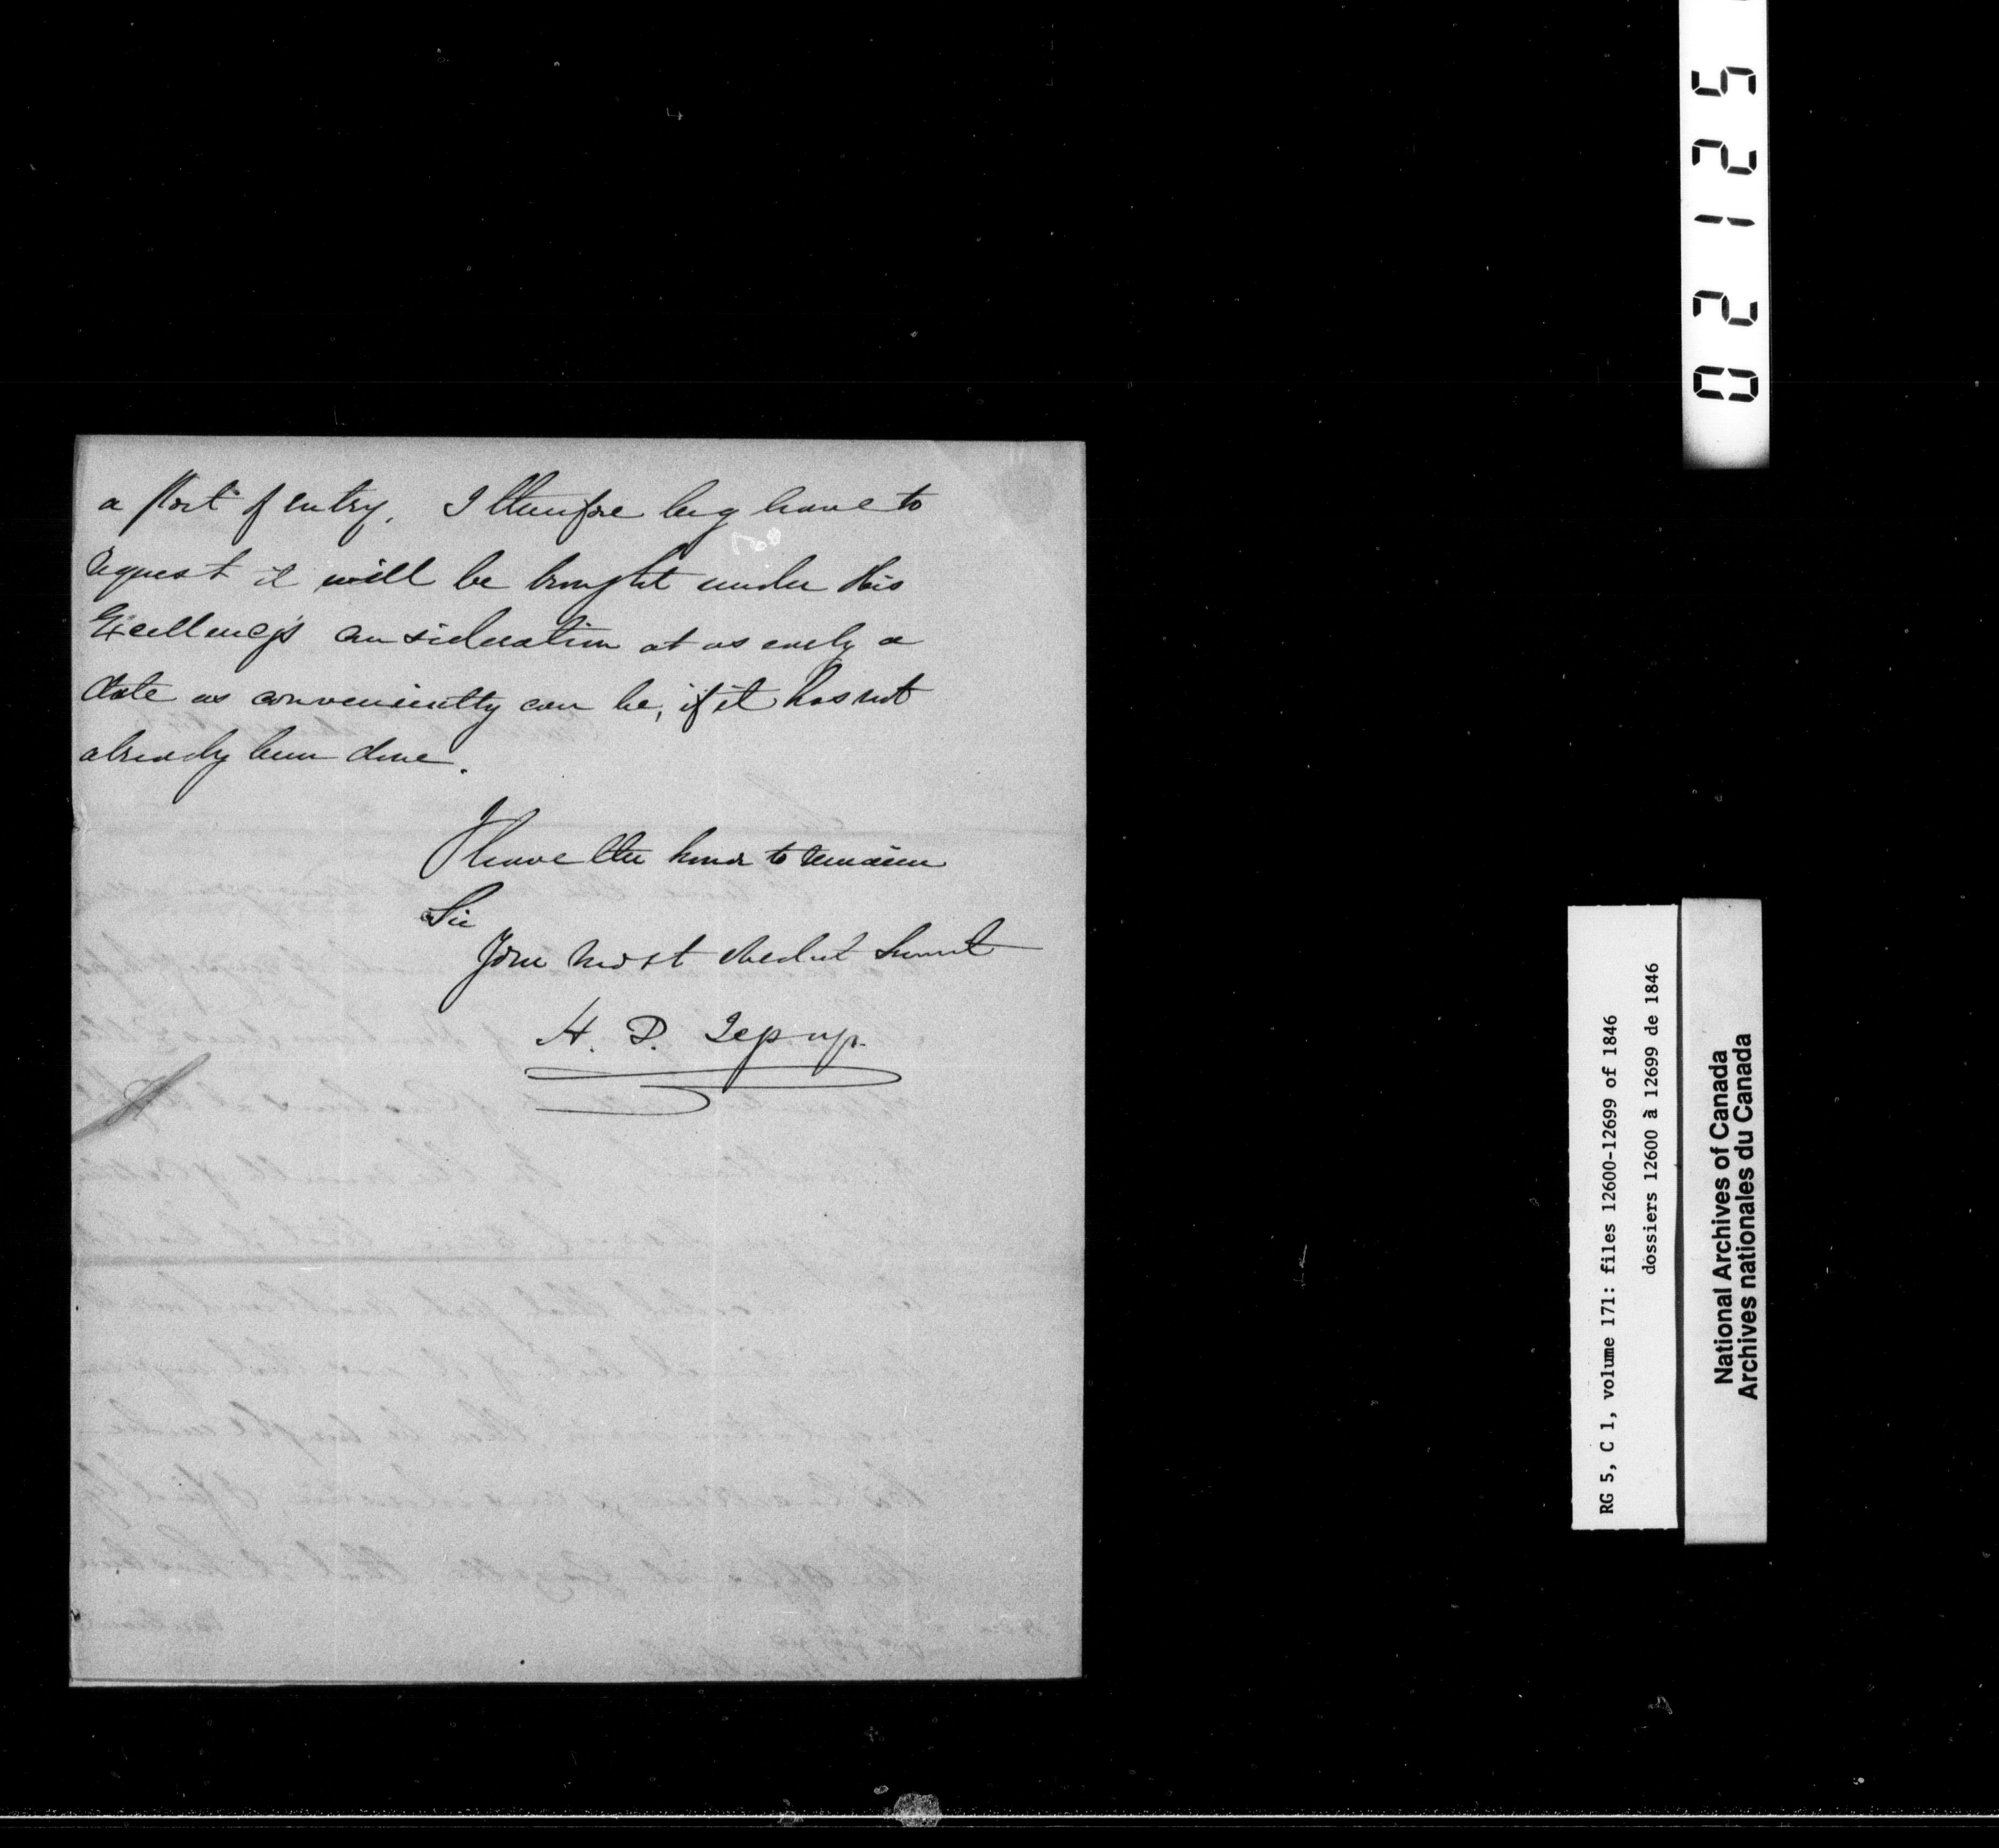 a Port of entry. I therefore beg leave to
request it will be brought under His
Excellency's consideration at as early a
date as conveniently can be, if it has not
already been done.
I have the honor to remain
Sir
Your most obedient Servant
H. D. Jessup
021125
RG 5, C 1, volume 171: files 12600-12699 of 1846
dossiers 12600 à 12699 de 1846
National Archives of Canada
Archives nationales du Canada